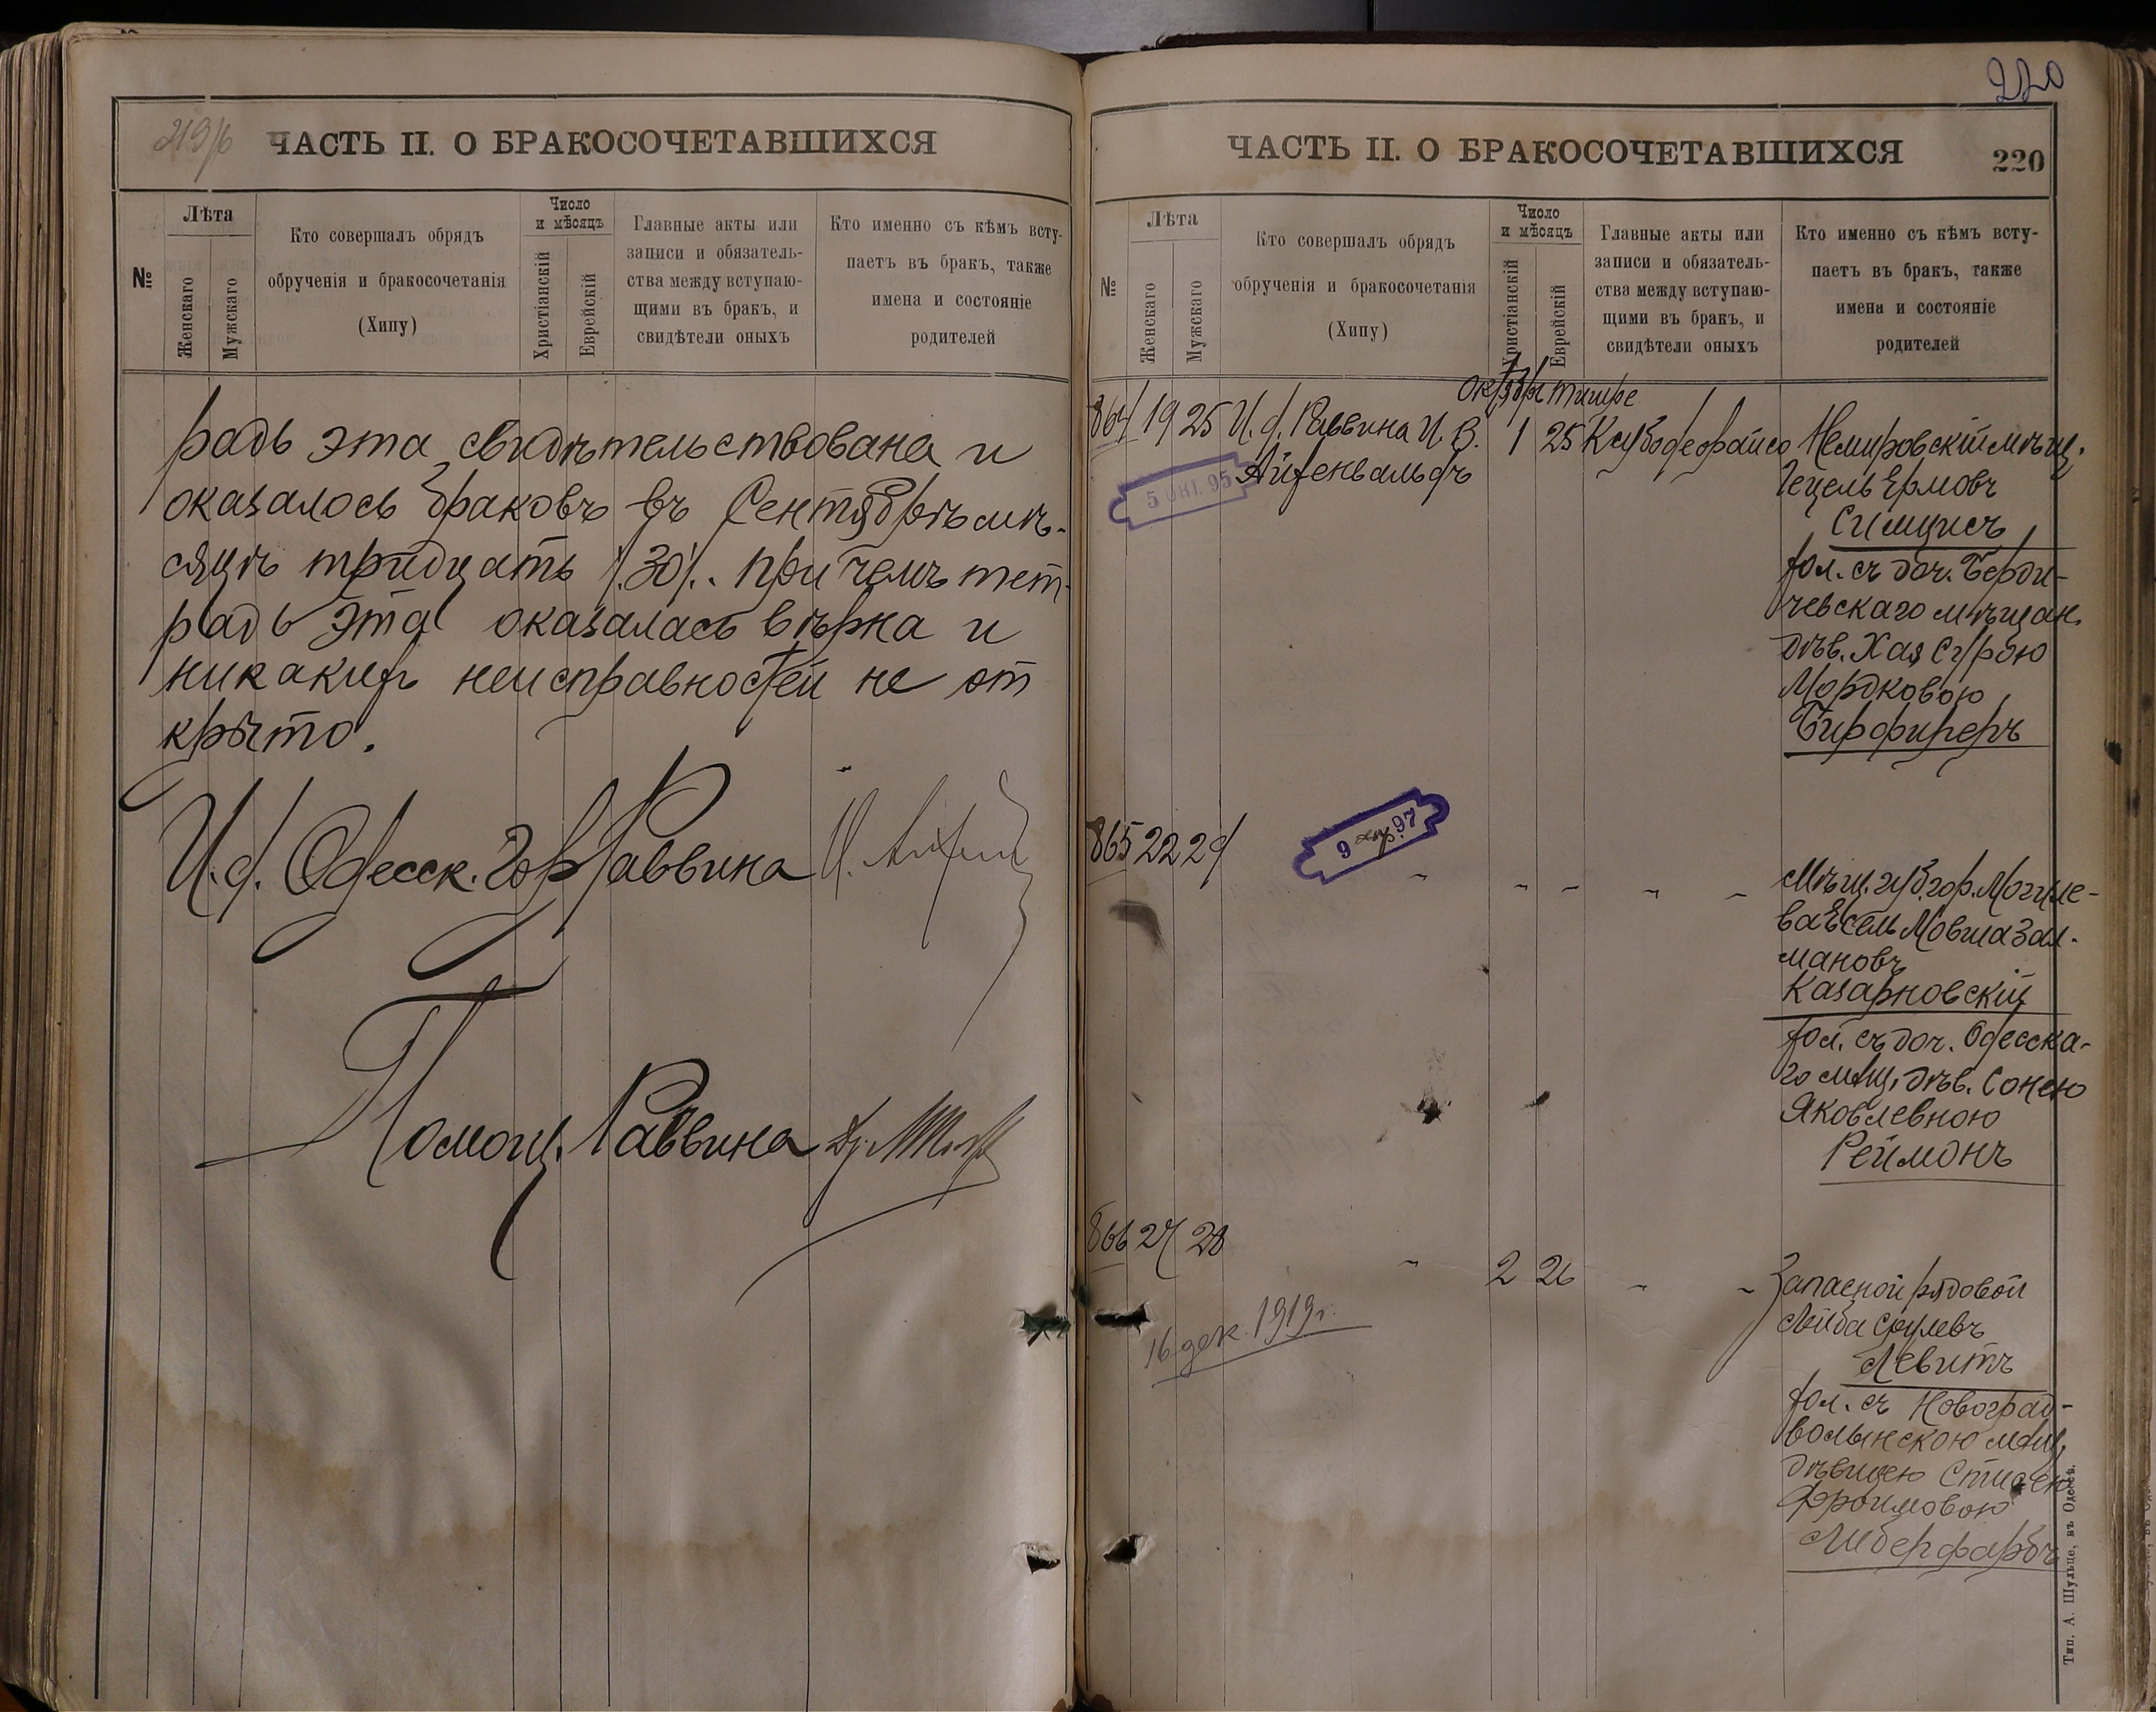 219/б
ЧАСТЬ II. О БРАКОСОЧЕТАВШИХСЯ
№
Лѣта
Женскаго
Мужскаго
Кто совершалъ обрядъ
обрученія и бракосочетанія
(Хипу)
Число
и мѣсяцъ
Христіанскій
Еврейскій
Главные акты или
записи и обязатель-
ства между вступаю-
щими въ бракъ, и
свидѣтели оныхъ
Кто именно съ кѣмъ всту-
паетъ въ бракъ, также
имена и состояніе
родителей
радь эта свидѣтельствована и
оказалось браковъ въ Сентябрѣ мѣ-
сяцѣ тридцать /30/. При чемъ тет-
радь эта оказалась вѣрна и
никакихъ неисправностей не от
крыто.
И. д. Одесск. Гор. Раввина
Помощ. Раввина
220
ЧАСТЬ II. О БРАКОСОЧЕТАВШИХСЯ
220
№
Лѣта
Женскаго
Мужскаго
Кто совершалъ обрядъ
обрученія и бракосочетанія
(Хипу)
Число
и мѣсяцъ
Христіанскій
Еврейскій
Главные акты или
записи и обязатель-
ства между вступаю-
щими въ бракъ, и
свидѣтели оныхъ
Кто именно съ кѣмъ всту-
паетъ въ бракъ, также
имена и состояніе
родителей
Октября тишре
864 19 25 И. д. Раввина И. В. 1 25 Немировскій мѣщ.
Айзенвальдъ
5 ОКТ. 95
Гецель Ермовъ
Симцисъ
хол. съ доч. Берди-
чевскаго мѣщан.
дѣв. Хая Сурою
Мордковою
Бирфиреръ
865 22 24 " " " " "
9 апр. 97
Мѣщ. губ. гор. Могиле-
ва Есель Мовша Зал-
мановъ
Казарновскій
хол. съ доч. Одесска-
го мѣщ. дѣв. Сонею
Яковлевною
Реймонъ
866 24 28 " 2 26 " "
16 дек. 1919 г.
Запасной рядовой
Лейба Срулевъ
Левитъ
хол. съ Новоград-
волынскою мѣщ.
дѣвицею
Фроимовою
Либерфарбъ
Тип. А. Шульце, въ Одессѣ.